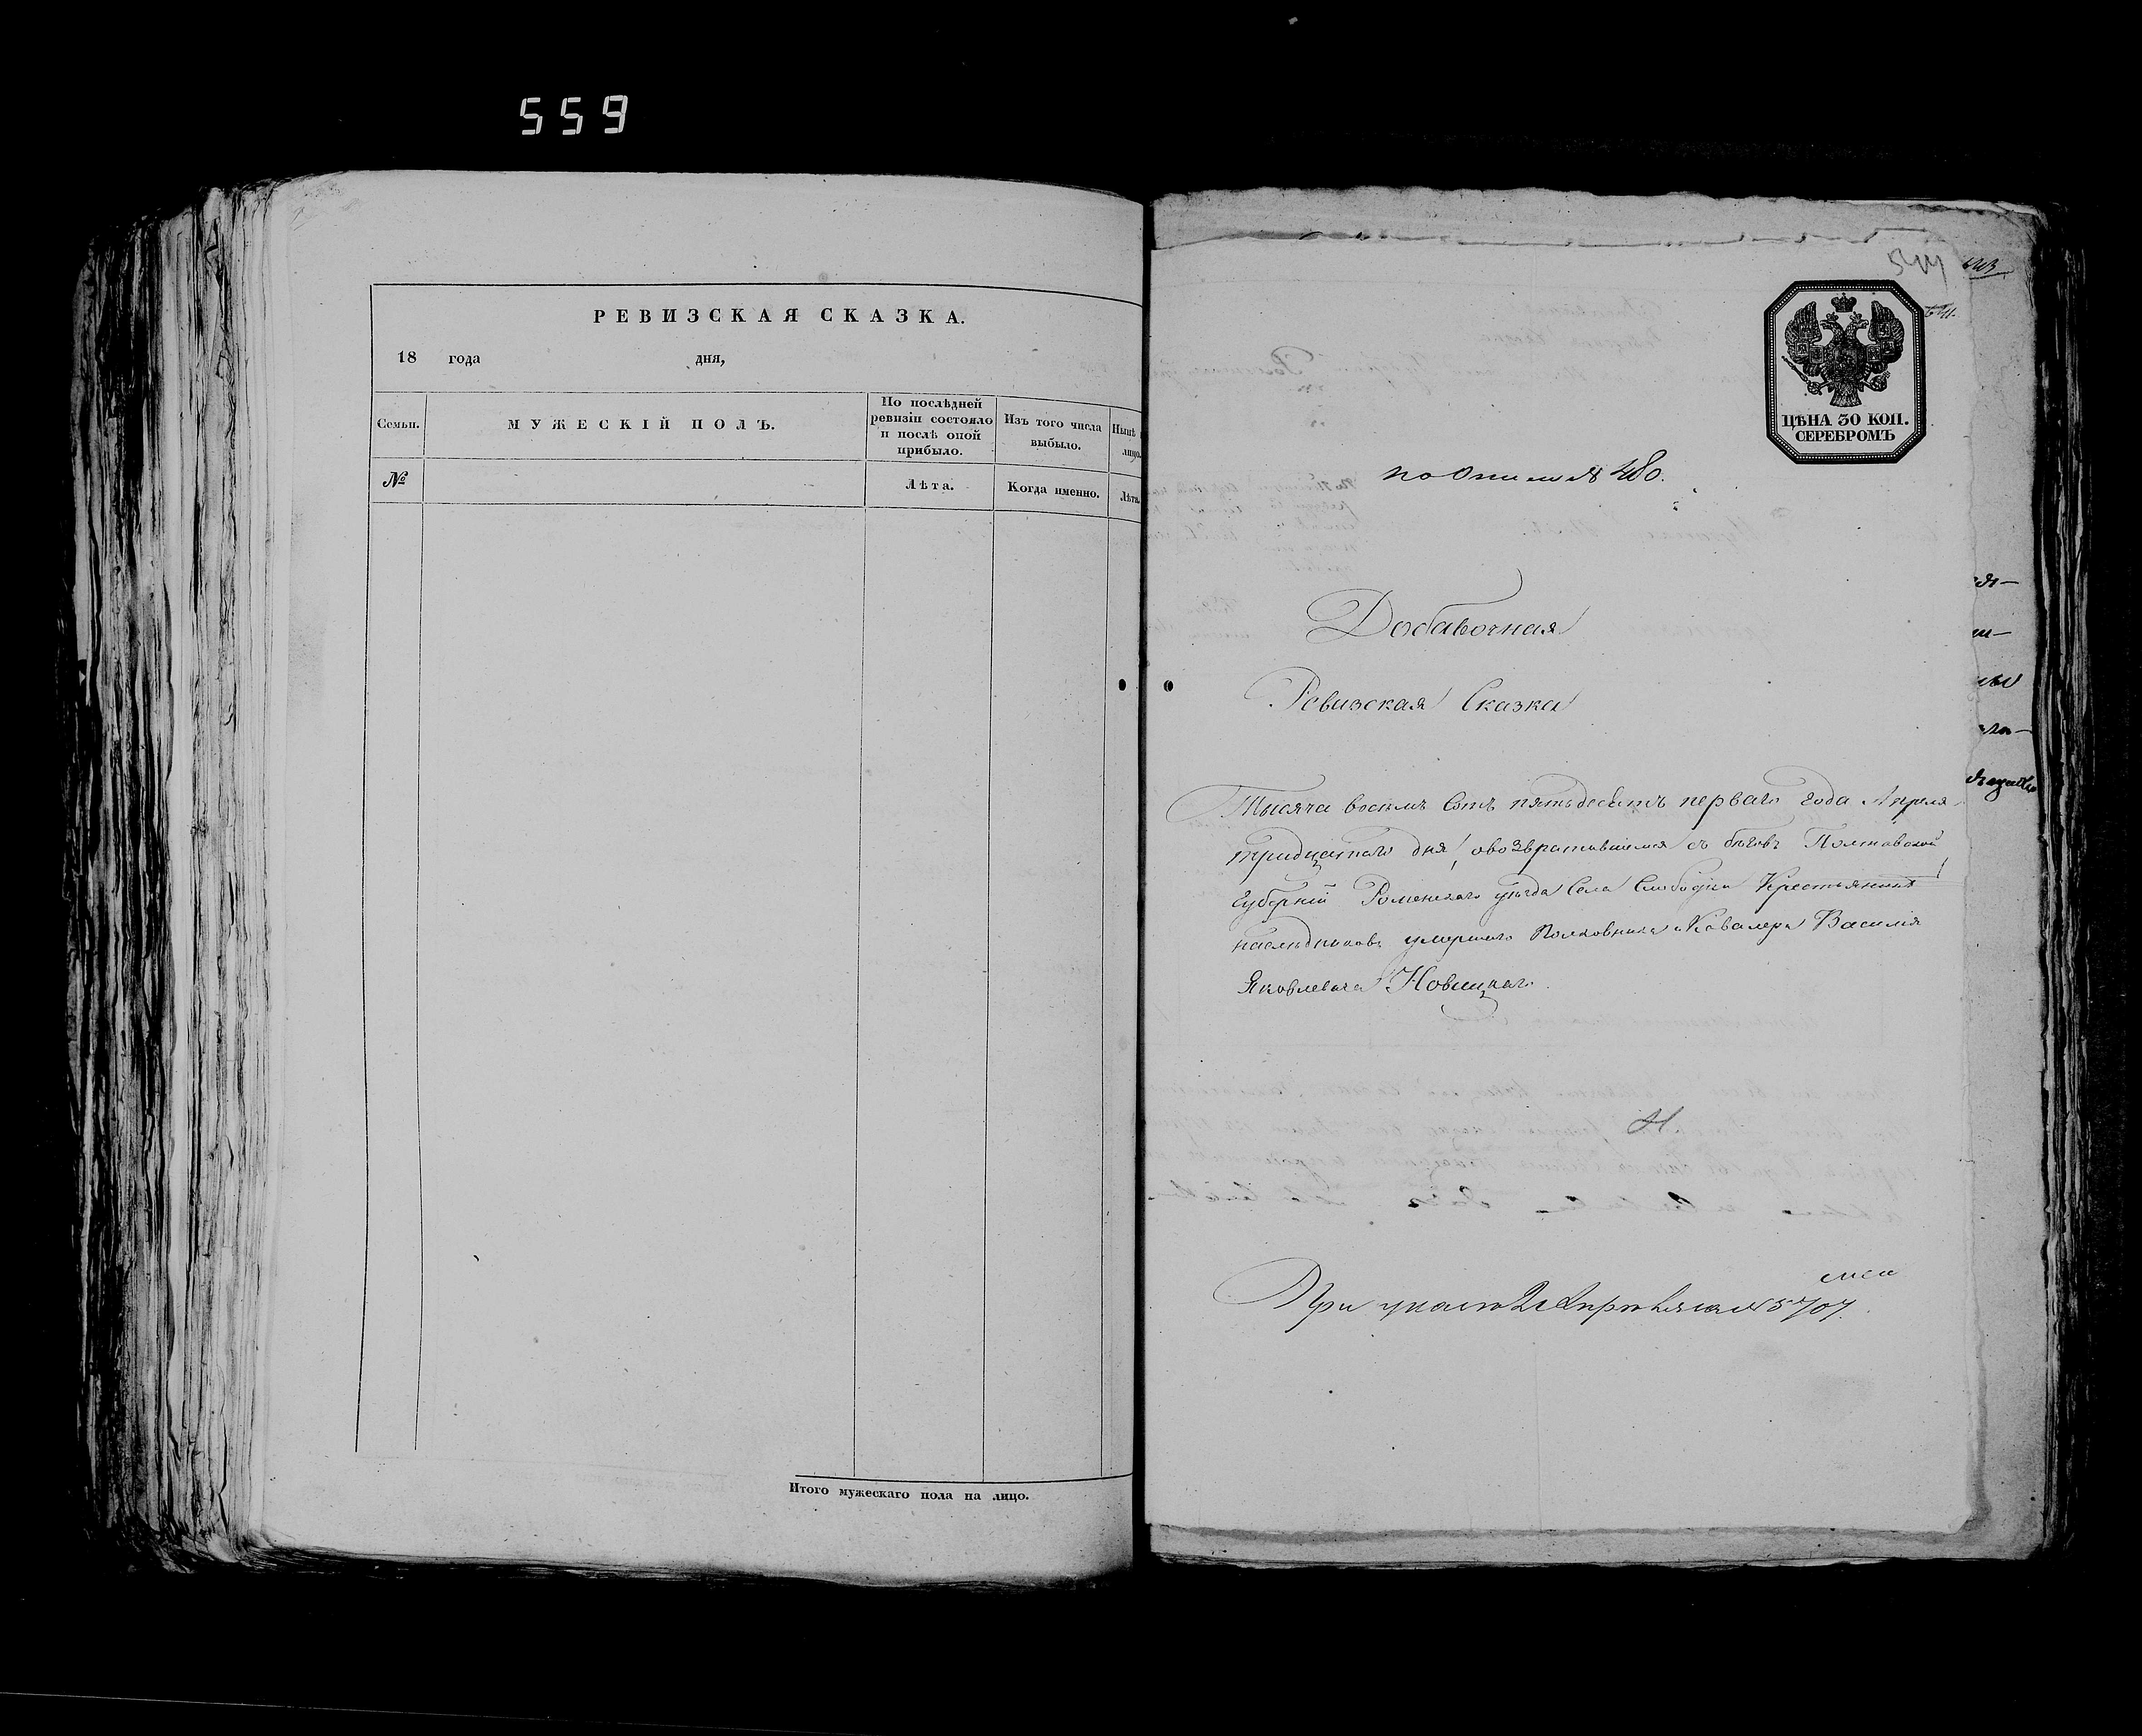 559
РЕВИЗСКАЯ СКАЗКА.
18 года дня,
Семьи.
МУЖЕСКІЙ ПОЛЪ.
По послѣдней
ревизіи состояло
и послѣ оной
прибыло.
Изъ того числа
выбыло.
Нынѣ
лицо.
№
Лѣта.
Когда именно.
Лѣта.
Итого мужескаго пола на лицо.
ЦѢНА 30 КОП.
СЕРЕБРОМЪ
по Описи № 480.
Добавочная
Ревизская Сказка
Тысяча восемь Сотъ пятьдесятъ перваго года Апреля
тридцатаго дня, овозвратившемся съ бѣговъ Полтавской
Губерніи Роменскаго уѣзда Села Слободки Крестьянинѣ
наслѣдниковъ умершаго Полковника и Кавалера Василія
Яковлевича Новицкаго.
При указѣ